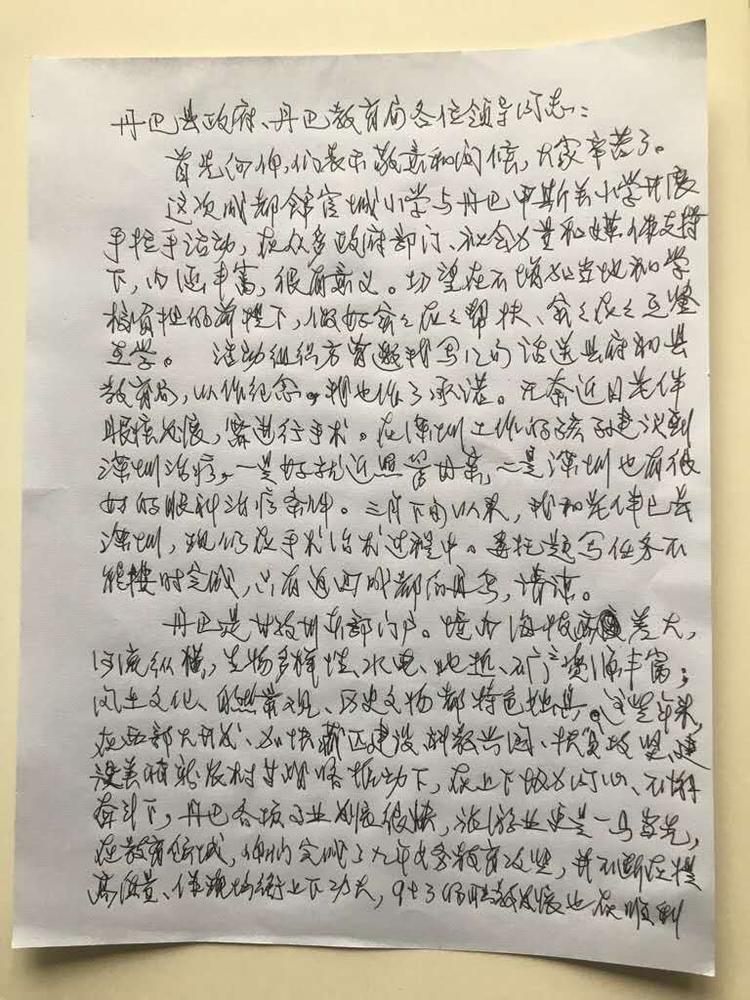 丹巴县政府、丹巴教育局各位领导同志：
首先向你们表示敬意和问候，大家辛苦了。
这次成都锦官城小学与丹巴甲斯孟小学开展
手拉手活动，在众多政府部门、社会力量和媒体支持
下，内涵丰富，很有意义。切望在不增加当地和学
校负担的前提下，做好实实在在帮扶、实实在在互鉴
互学。 活动组织方曾邀我写几句话送县府和县
教育局，以作纪念。我也作了承诺。无奈近日老伴
眼疾发展，需进行手术。在深圳工作的孩子建议到
深圳治疗，一是好就近照管母亲，二是深圳也有很
好的眼科治疗条件。三月下旬以来，我和老伴已在
深圳，现仍在手术治疗过程中。委托题写任务不
能按时完成，只有返回成都后再写，请谅。
丹巴是甘孜州东部门户。境内海拔高差大，
河流纵横，生物多样性、水电、地热、矿产资源丰富；
风土文化、自然景观、历史文物都特色独具。这些年来，
在西部大开发、加快藏区建设、科教兴国、扶贫攻坚、建
设美丽新农村等战略推动下，在上下协力同心、不懈
奋斗下，丹巴各项事业发展很快，旅游业更是一马当先，
在教育领域，你们实现了九年义务教育攻坚，并不断在提
高质量、促进均衡上下功夫，9+3的职教发展也在顺利